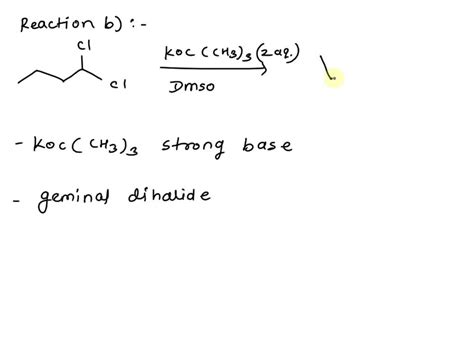 Reaction b) :-
Cl
Cl
KOC(CH3)3 (2 aq.)
DMSO
- KOC(CH3)3 strong base
- geminal dihalide